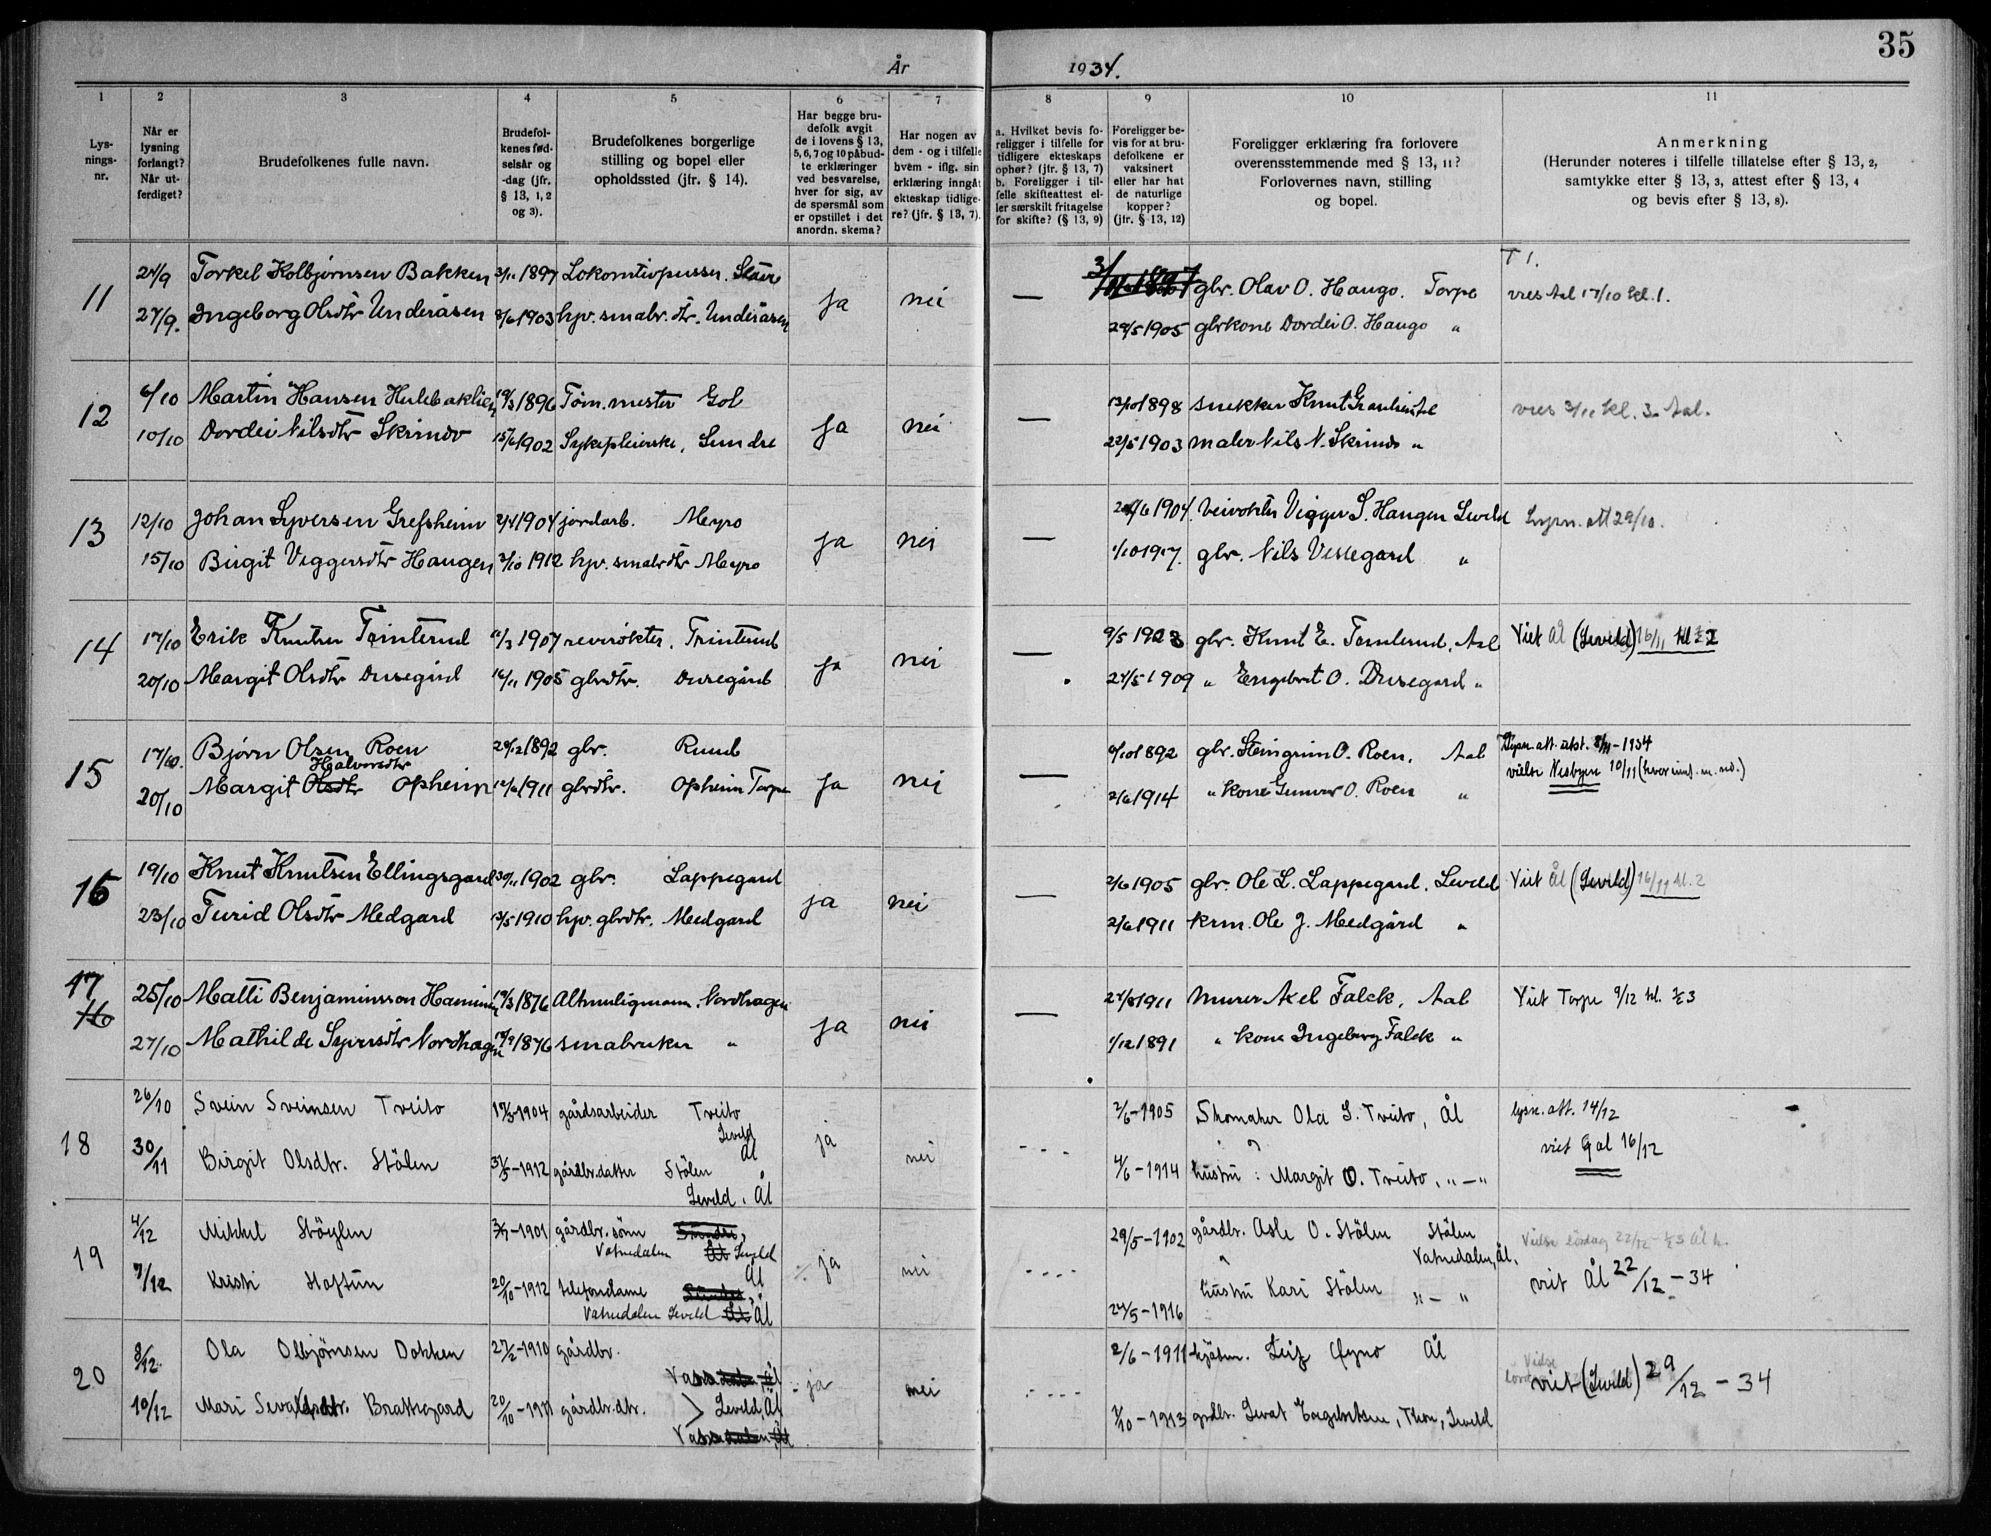 35
År 1934.
1
2
3
4
5
6
7
8
9
10
11
Lys-
nings-
nr.
Når er
lysning
forlangt?
Når ut-
ferdiget?
Brudefolkenes fulle navn.
Brudefol-
kenes fød-
selsår og
-dag (jfr.
§ 13, 1, 2
og 3).
Brudefolkenes borgerlige
stilling og bopel eller
opholdssted (jfr. § 14).
Har begge bru-
defolk avgit
de i lovens § 13,
5, 6, 7 og 10 påbud-
te erklæringer
ved besvarelse,
hver for sig, av
de spørsmål som
er opstillet i det
anordn. skema?
Har nogen av
dem - og i tilfelle
hvem - iflg. sin
erklæring inngåt
ekteskap tidlige-
re? (jfr. § 13, 7).
a. Hvilket bevis fo-
religger i tilfelle for
tidligere ekteskaps
ophør? (jfr. § 13, 7)
b. Foreligger i til-
felle skifteattest el-
ler særskilt fritagelse
for skifte? (§ 13, 9)
Foreligger be-
vis for at bru-
defolkene er
vaksinert
eller har hat
de naturlige
kopper?
(jfr. § 13, 12)
Foreligger erklæring fra forlovere
overensstemmende med § 13, 11?
Forlovernes navn, stilling
og bopel.
Anmerkning
(Herunder noteres i tilfelle tillatelse efter § 13, 2,
samtykke efter § 13, 3, attest efter § 13, 4
og bevis efter § 13, 8).
11
24/9 Torkel Kolbjørnsen Bakken 3/11 1897 Lokomtivpusser. ja nei — gbr. Olav O. Haugo. Torpe
27/9. Ingeborg Olsdtr Underåsen 8/6 1903 hjv. smabr. dtr. Underåsen 29/5 1905 gbrkone Dordei O. Haugo " vies Aal 17/10 kl. 1.
12
6/10 Martin Hansen 19/3 1896 Tøm. mester Gol ja nei — 13/10 1898 snekker Knut vies 3/11 kl. 3. Aal.
10/10 Dordei Nilsdtr Skrindo 15/6 1902 Sykepleierske, Sundre 22/5 1903 maler Nils N. Skrindo "
13
12/10 Johan Syversen Grefsheim 2/4 1904 jordarb. Myro ja nei — 1904. veivokter Vigger S. Haugen Leveld Lysn. att 29/10.
15/10 Birgit Viggersdtr Haugen 2/10 1912 hjv. smabrdtr Myro 1/10 1917. gbr. Nils Villegard "
14
17/10 Erik Knutsen Trinterud 1907 revirøkter. Trinterud ja nei — 9/5 1923 gbr. Knut E. Aal Viet Ål (Leveld) 16/11 kl
20/10 Margit Olsdtr Dusegård 16/11 1905 gbrdtr. Dusegård 24/5 1909 " Engebret O. Dusegard "
15
17/10. Bjørn Olsen Roen 29/12 1892 gbr. Ruud ja nei — 6/10 1892 gbr. Steingrim O. Roen. Aal Lysn. att. utst. 8/11-1934
Halvorsdtr
20/10 Margit Olsdtr Opheim 12/6 1911 gbrdtr. Opheim Torpe 2/6 1914 " kone Gunvor O. Roen " vielse Nesbyen 10/11
16
19/10 Knut Knutsen Ellingsgard 30/11 1902 gbr. Lappegard ja nei — 2/6 1905 gbr. Ole L. Lappegard. Leveld Viet Ål (Leveld) 16/11 kl. 2
23/10 Turid Olsdtr Medgard 13/5 1910 hjv. gbrdtr. Medgard 2/6 1911 krm. Ole J. Medgård "
17
16
25/10 Matti Benjaminsson 19/3 1876 Altmuligmann. Nordhagen ja nei — 24/8 1911 murer Axel Falck, Aal Viet Torpe 9/12 kl. ½3
27/10 Mathilde Syversdtr Nordhagen 1876 smabruker " 1/12 1891 " kone Ingeborg Falck "
18
26/10 Svein Sveinsen Tveito 17/3-1904 gårdsarbeider Tveito Leveld Ål ja nei 2/6-1905 Skomaker Ola S. Tveito, Ål lysn. att. 14/12
30/11 Birgit Olsdtr. Stölen 31/5-1912 gårdbr.datter Stölen Leveld, Ål 4/6-1914 hustru: Margit O. Tveito, "—" viet Gol 16/12
19
4/12 Mikkel Stöylen -1901 gårdbr. sönn Vatnedalen Leveld Ål ja nei 29/5-1902 gårdbr. Asle O. Stölen Stölen Vatnedalen, Ål. Vielse lördag 22/12 - ½3 Ål k.
7/12 Kristi Haftun 20/10-1912 telefondame Vatnedalen Leveld Ål 24/5-1916 hustru Kari Stölen "—" viet Ål 22/12-34
20
8/12 Ola Olbjörnsen Dokken 27/2-1910 gårdbr. ja nei 2/6-1911 Leif Öyno Ål Vielse
10/12 Mari Sevaldsdtr. Brattegard 20/10-1911 gårdbr.dtr. Leveld, Ål 7/10-1913 grdbr. Sevat Engebretsen, Thon, Leveld viet (Leveld) 29/12-34